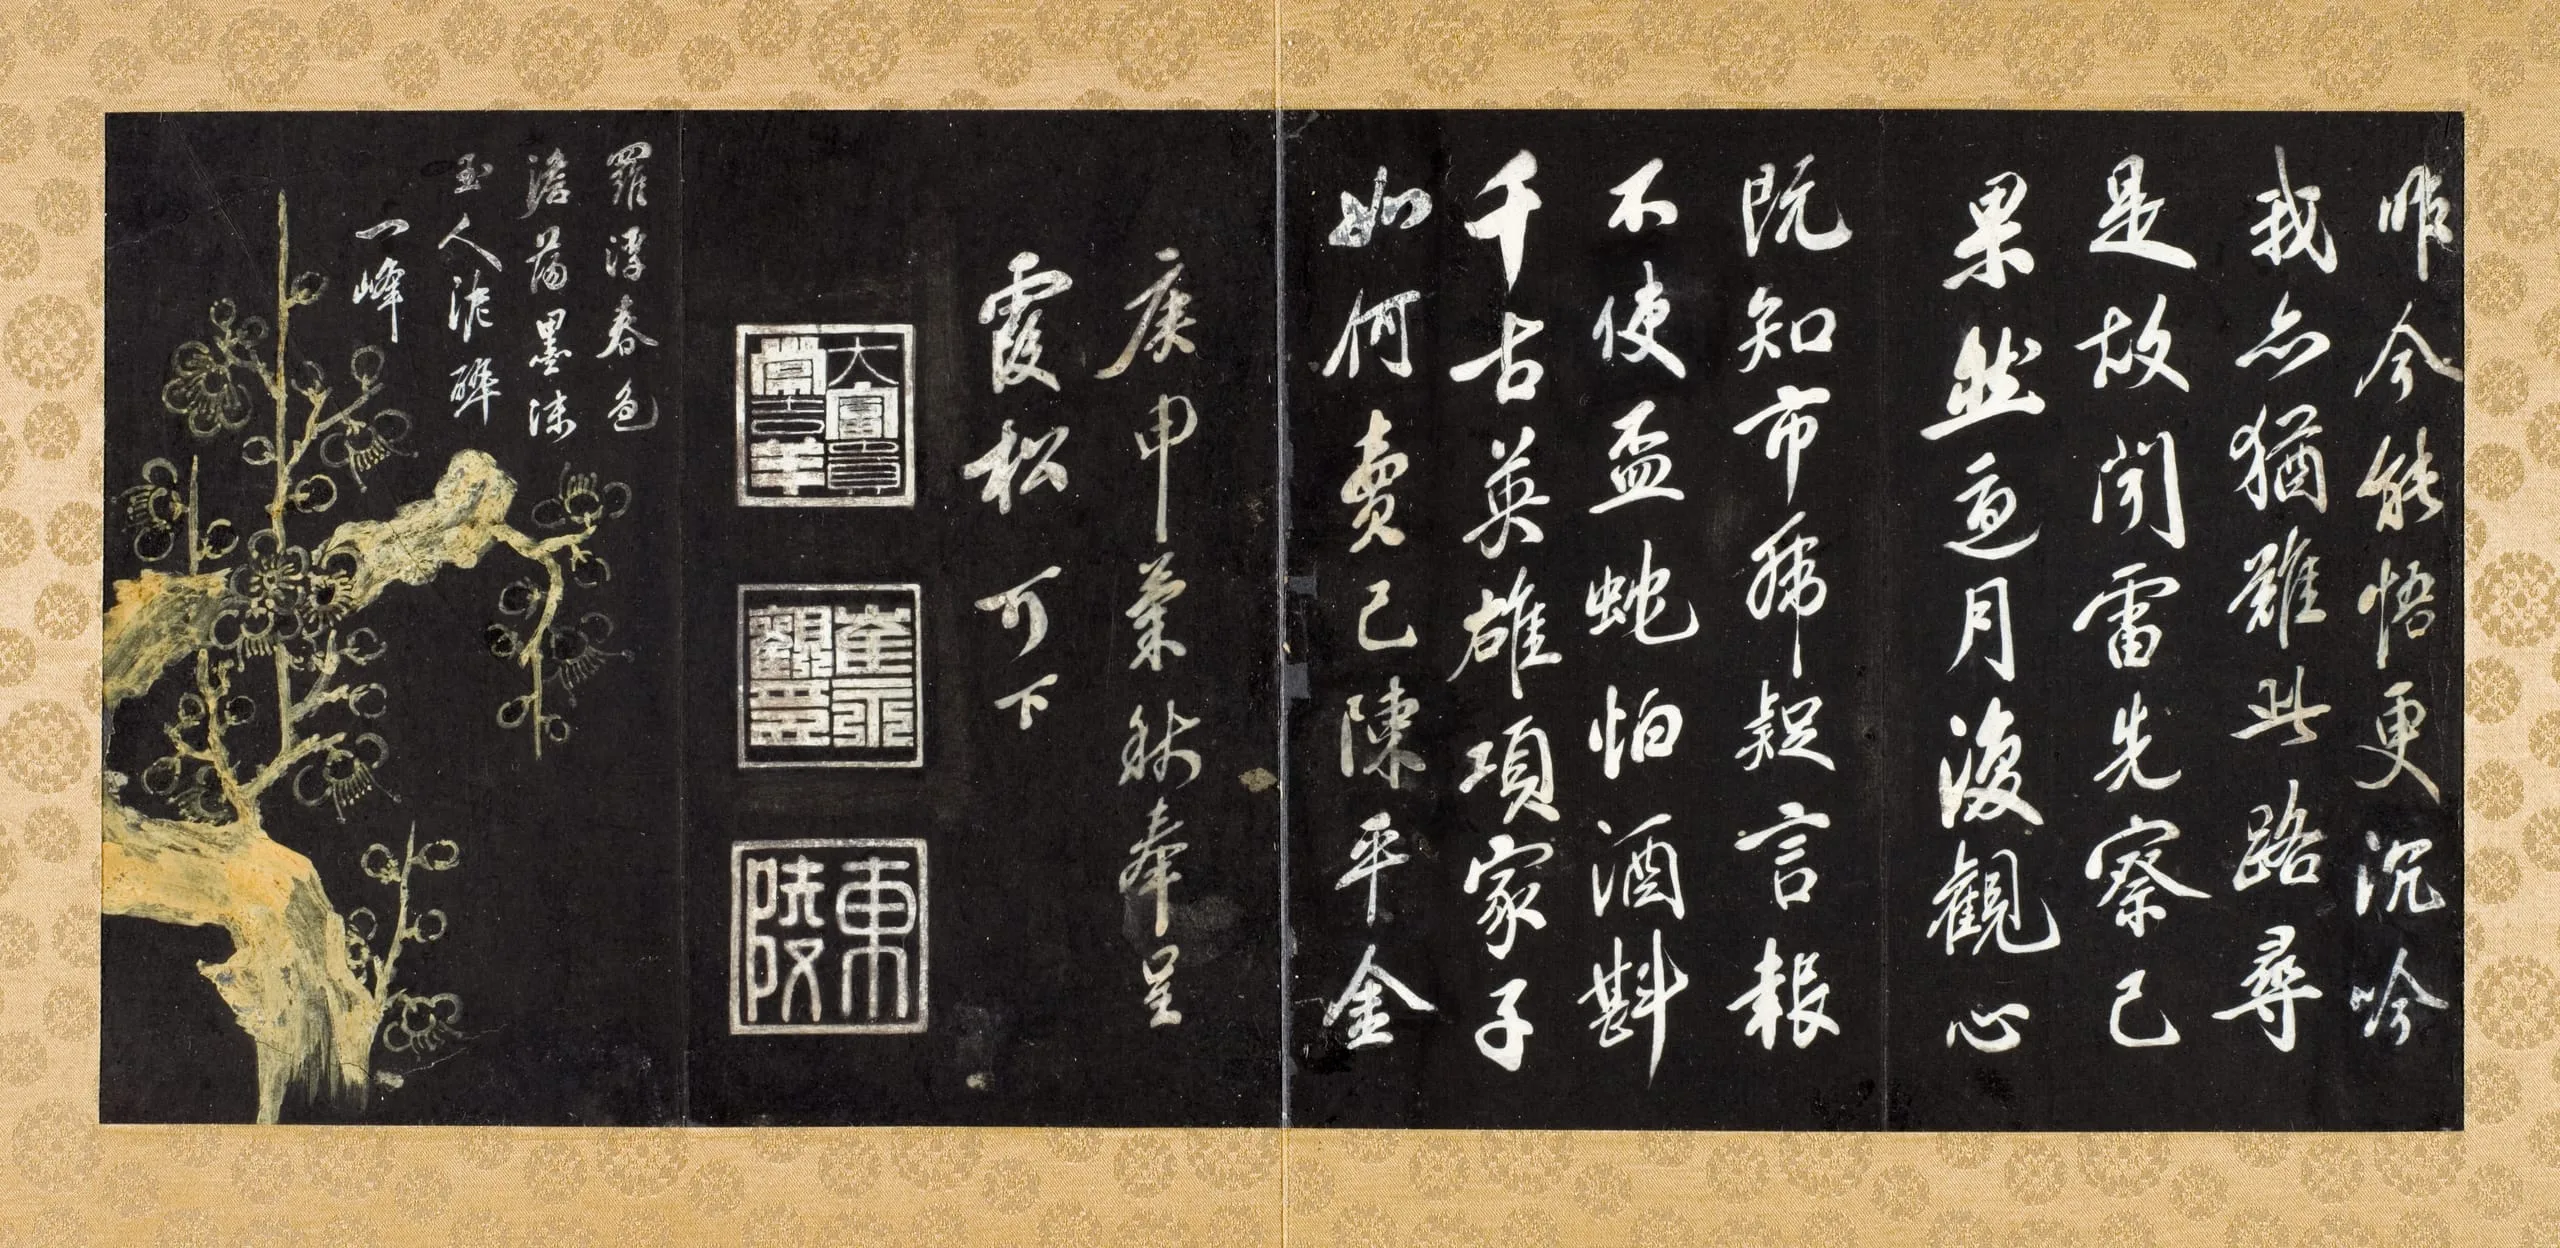 昨今能悟更沉吟
我亦猶難此路尋
是故閒雷先察己
果然迎月復觀心
既知市虎疑言報
不使盃蛇怕酒斟
千古英雄項家子
如何賣已陳平金
庚申菊秋奉呈
霞松可下
大富貴
當吉羊
崔永
觀印
東
陵
羅浮春色
澹蕩墨沫
玉人泥醉
一峰